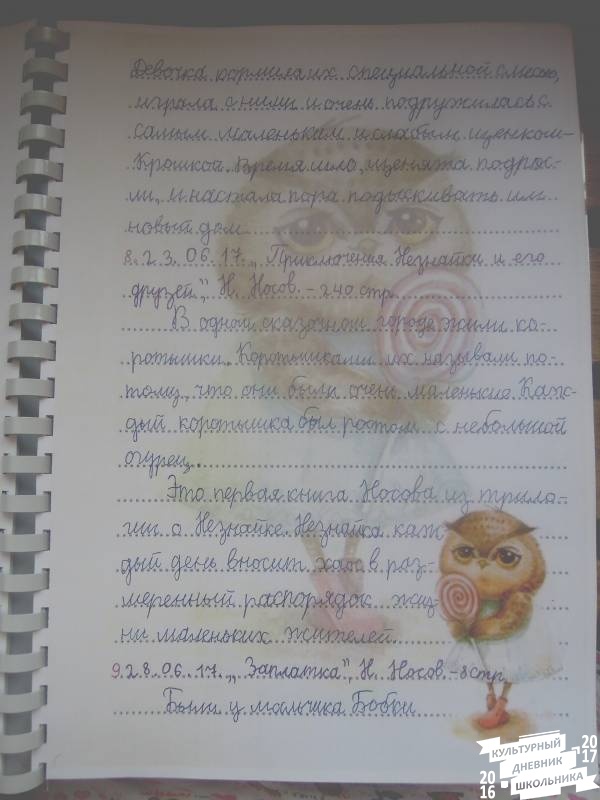 Девочка кормила их специальной смесью,
играла с ними и очень подружилась с
самым маленьким и слабым щенком -
Крошкой. Время шло, щенята подрос-
ли, и настала пора подыскивать им
новый дом.
8. 23.06.17. „Приключения Незнайки и его
друзей", Н. Носов. - 240 стр.
В одном сказочном городе жили ко-
ротышки. Коротышками их называли по-
тому, что они были очень маленькие. Каж-
дый коротышка был ростом с небольшой
огурец.
Это первая книга Носова из трило-
гии о Незнайке. Незнайка каж
дый день вносит хаос в раз-
меренный распорядок жиз
ни маленьких жителей.
9. 28.06.17. „Заплатка", Н. Носов. - 8 стр.
Были у мальчика Бобки
КУЛЬТУРНЫЙ
ДНЕВНИК
ШКОЛЬНИКА
2016
2017